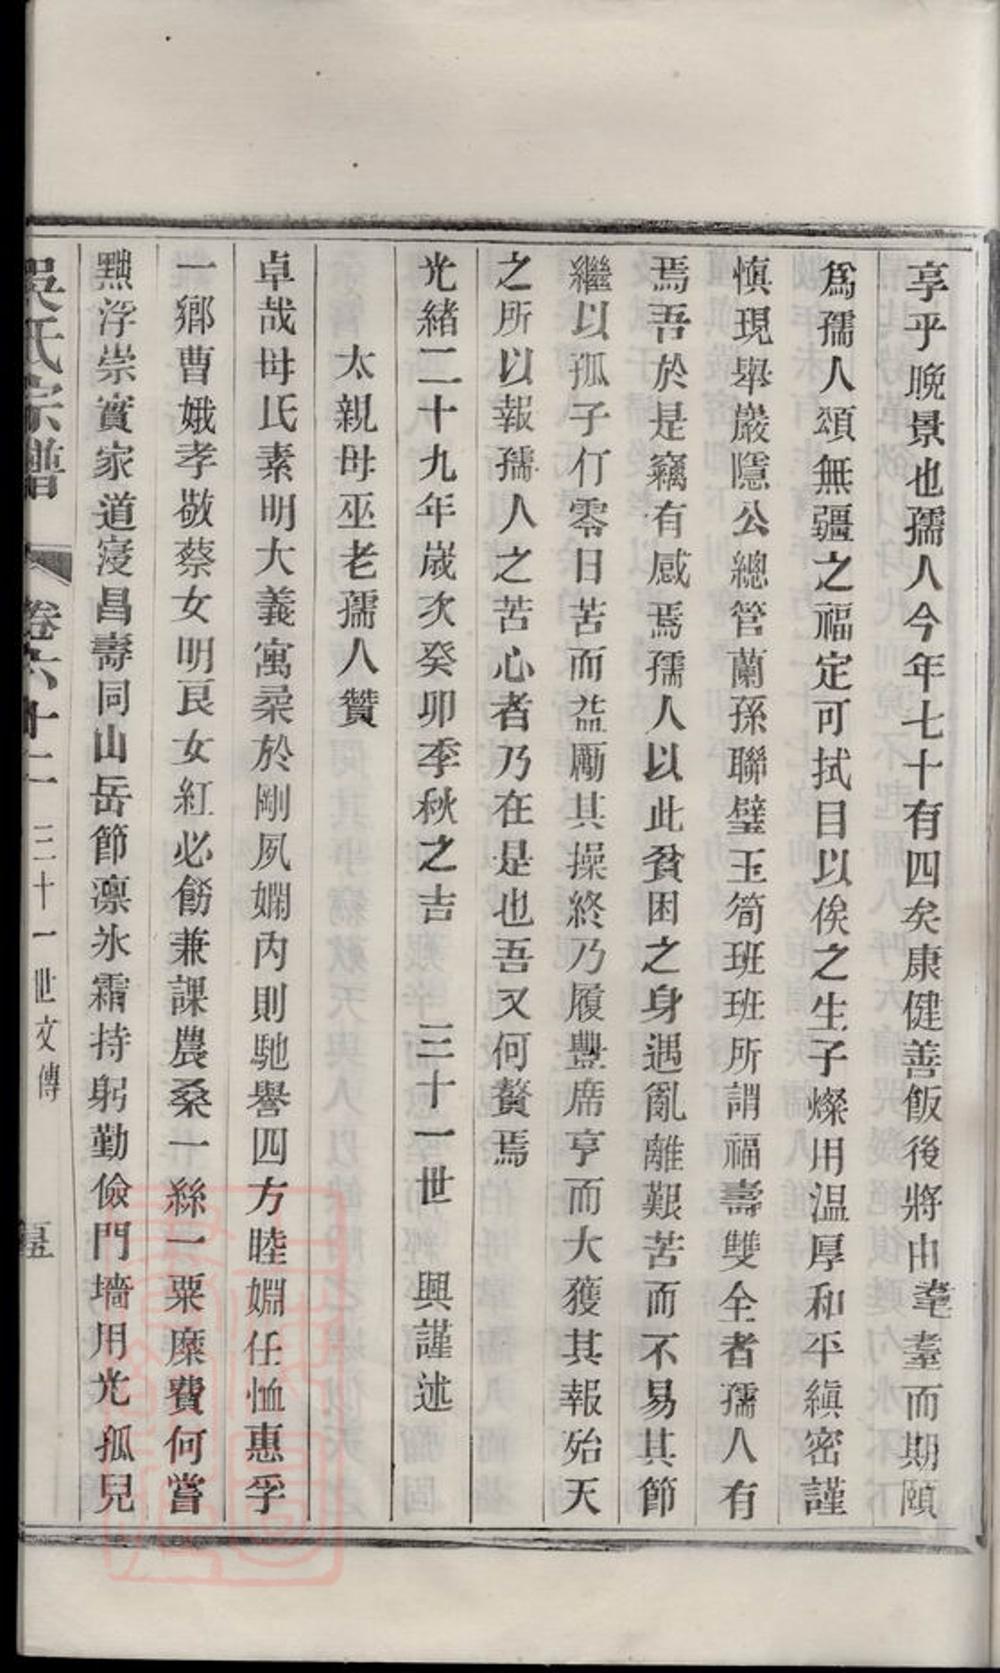 享乎晚景也孺人今年七十有四矣康健善飯後將由耄耋而期頤
爲孺人頌無疆之福定可拭目以俟之生子燦用温厚和平縝密謹
慎現舉嚴隱公總管蘭孫聯璧玉筍班班所謂福壽雙全者孺人有
焉吾於是竊有感焉孺人以此貧困之身遇亂離艱苦而不易其節
繼以孤子仃零日苦而益勵其操終乃履豐席亨而大獲其報殆天
之所以報孺人之苦心者乃在是也吾又何贅焉
光緒二十九年歲次癸卯季秋之吉 三十一世 興謹述
太親母巫老孺人贊
卓哉母氏素明大義寓柔於剛夙嫻內則馳譽四方睦婣任恤惠孚
一鄉曹娥孝敬蔡女明艮女紅必飭兼課農桑一絲一粟糜費何嘗
黜浮崇實家道寖昌壽同山岳節凛氷霜持躬勤儉門墻用光孤兒
吳氏宗譜 卷六十二 三十一世文傳 五